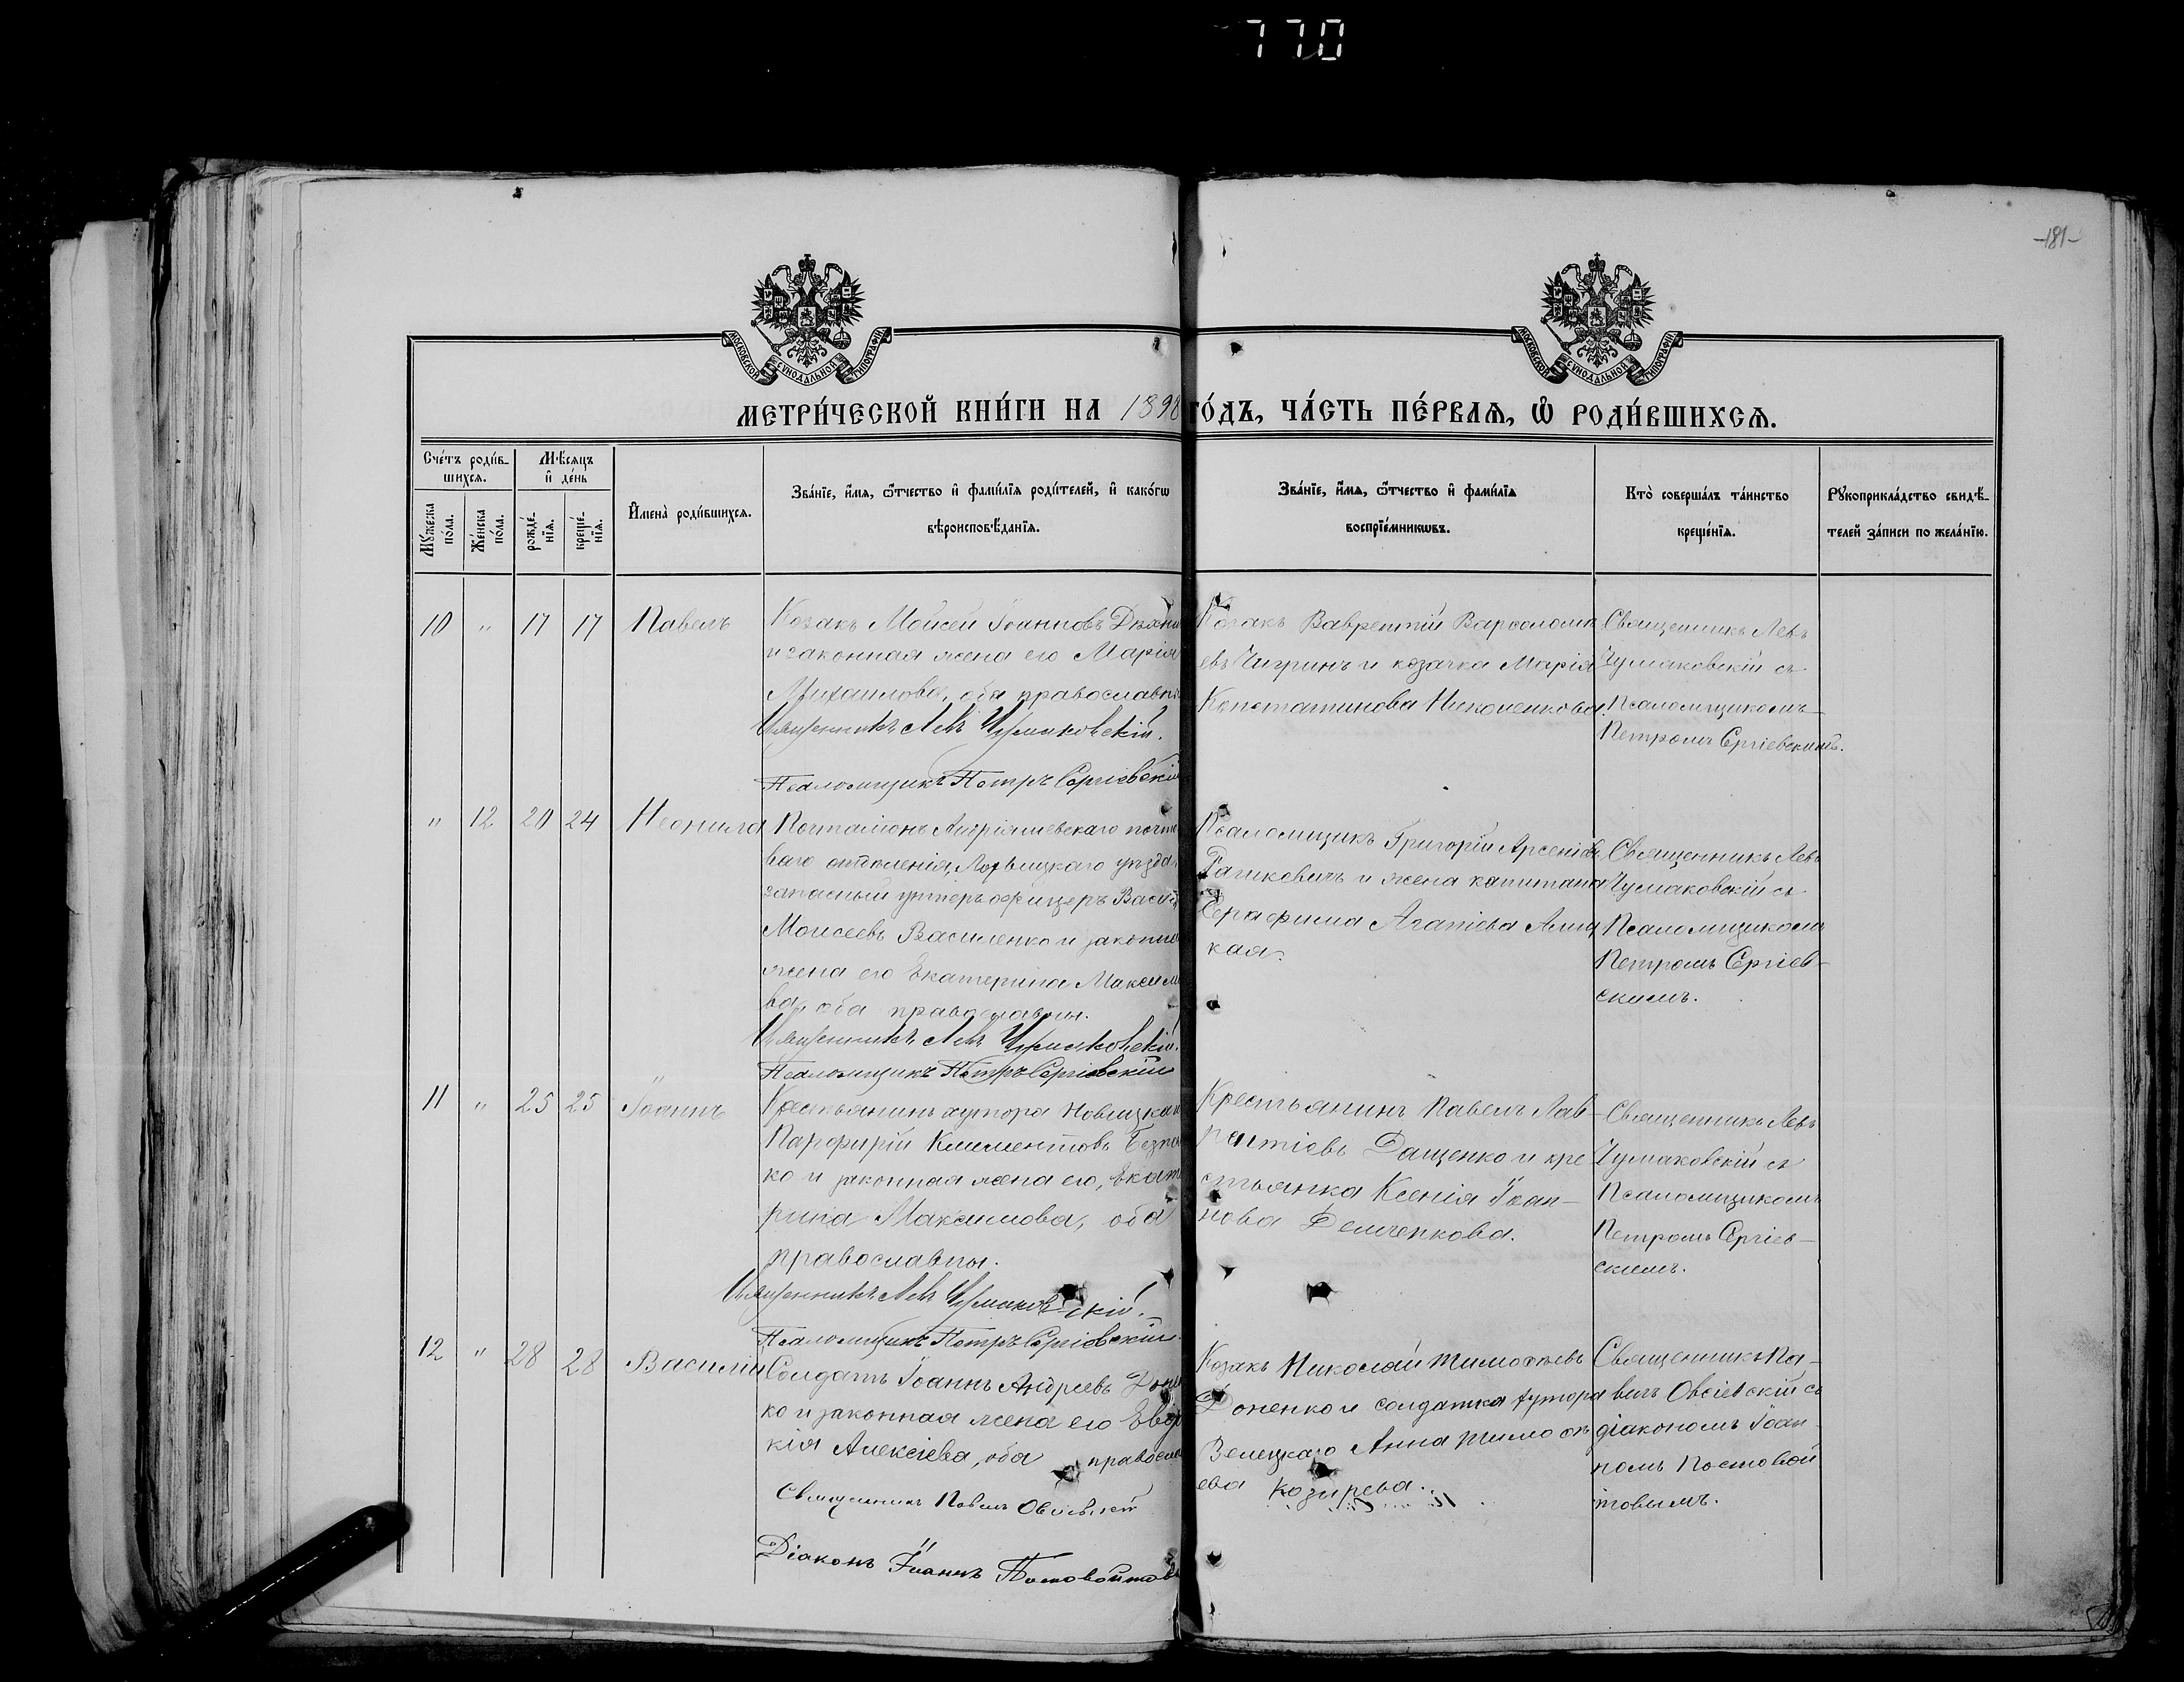 770
-181-
МОСКОВСКОЙ СУНОДАЛЬНОЙ ТИПОГРАФІИ
МОСКОВСКОЙ СУНОДАЛЬНОЙ ТИПОГРАФІИ
МЕТРИ́ЧЕСКОЙ КНИ́ГИ НА 1898 ГО́ДЪ, ЧА́СТЬ ПЕ́РВАѦ, Ѡ҆ РОДИ́ВШИХСѦ.
Сче́тъ роди́в-
шихсѧ.
Мꙋ́жеска
по́ла.
Же́нска
по́ла.
Мѣ́сѧцъ
и҆ де́нь
рожде́-
нїѧ.
креще́-
нїѧ.
И҆мена̀ роди́вшихсѧ.
Зва́нїе, и҆́мѧ, ѻ҆́тчество и҆ фами́лїѧ роди́телей, и҆ како́гѡ
вѣроисповѣ́данїѧ.
Зва́нїе, и҆́мѧ, ѻ҆́тчество и҆ фами́лїѧ
воспрїе́мникѡвъ.
Кто̀ соверша́лъ та́инство
креще́нїѧ.
Рꙋкоприкла́дство свидѣ́-
телей за́писи по жела́нїю.
10 " 17 17 Павелъ
Козакъ Моисей Іоанновъ
и законная жена его Марія
Михаилова, оба православн
Священникъ Левъ Чумаковскій.
Псаломщикъ Петръ Сергіевскій
Козакъ Варволоме
евъ Чигринъ и козачка Марія
Константинова Никоненкова.
Священникъ Левъ
Чумаковскій съ
Псаломщикомъ
Петромъ Сергіевскимъ.
" 12 20 24 Неонила
Почталіонъ почто
ваго отдѣленія, Лохвицкаго уѣзда,
запасный унтеръ офицеръ Васил
Моисеевъ Василенко и законна
жена его Екатерина Максимо
ва, оба православны.
Священникъ Левъ Чумаковскій.
Псаломщикъ Петръ Сергіевскій
Псаломщикъ Григорій Арсеніевъ
и жена капитана
Серафима Агапіева
кая.
Священникъ Левъ
Чумаковскій съ
Псаломщикомъ
Петромъ Сергіев-
скимъ.
11 " 25 25 Іоаннъ
Крестьянинъ хутора
Парфирій Климентовъ
ко и законная жена его, Екате
рина Максимова, оба
православны.
Священникъ Левъ Чумаковскій.
Псаломщикъ Петръ Сергіевскій
Крестьянинъ Павелъ Лав-
рентіевъ Дащенко и кре
стьянка Ксенія Іоан-
нова Демченкова.
Священникъ Левъ
Чумаковскій съ
Псаломщикомъ
Петромъ Сергіев-
скимъ.
12 " 28 28 Василій
Солдатъ Іоаннъ Андреевъ Доне
ко и законная жена его Евдо
кія Алексіева, оба правосла
Священникъ Павелъ Овсіевскій
Діаконъ Іоаннъ Постовойтовъ
Козакъ Николай Тимоѳеевъ
Доненко и солдатка хутора
Анна Тимоѳе
ева Козырева.
Священникъ Па-
велъ Овсіевскій съ
діакономъ Іоан-
номъ Постовой
товымъ.